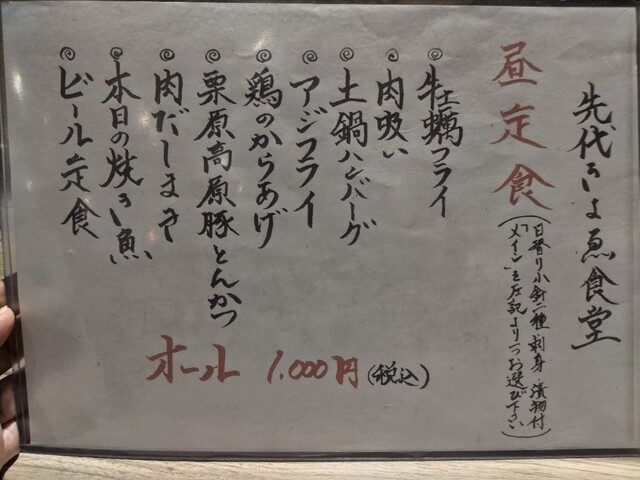 先代きよゑ食堂
昼定食
(日替り小鉢二種 刺身 漬物付
「メイン」を左記より一つお選び下さい)
牡蠣フライ
肉吸い
土鍋ハンバーグ
アジフライ
鶏のからあげ
栗原高原豚とんかつ
肉だしまき
本日の焼き魚
ビール定食
オール 1.000円(税込)